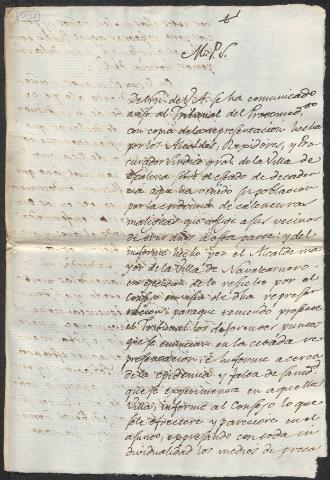 M. P. S.
De orn. de V.A. se ha comunicado
aviso al Tribunal del Protomed.to
con copia de la representacion hecha
por los Alcaldes, Regidores, y Pro-
curador Sindico gral de la Villa de
sobre el estado de decaden-
cia aque ha venido su poblacion
por la epidemia de calenturas
malignas que aflige a sus vecinos
de tres años a esta parte; y del
informe hecho por el Alcalde ma-
yor de la Villa de Navalcarnero
en execucion de lo resuelto por el
Consejo en vista de dha represen-
tacion; para que teniendo presente
el Tribunal los diferentes puntos
que se enuncian en la citada re-
presentacion, e informe a cerca
de la epidemia y falta de sanidad
que se experimenta en aquella
Villa, informe al Consejo lo que
se le ofreciere y pareciere en el
asunto, expresando con toda in-
dividualidad los medios de preca